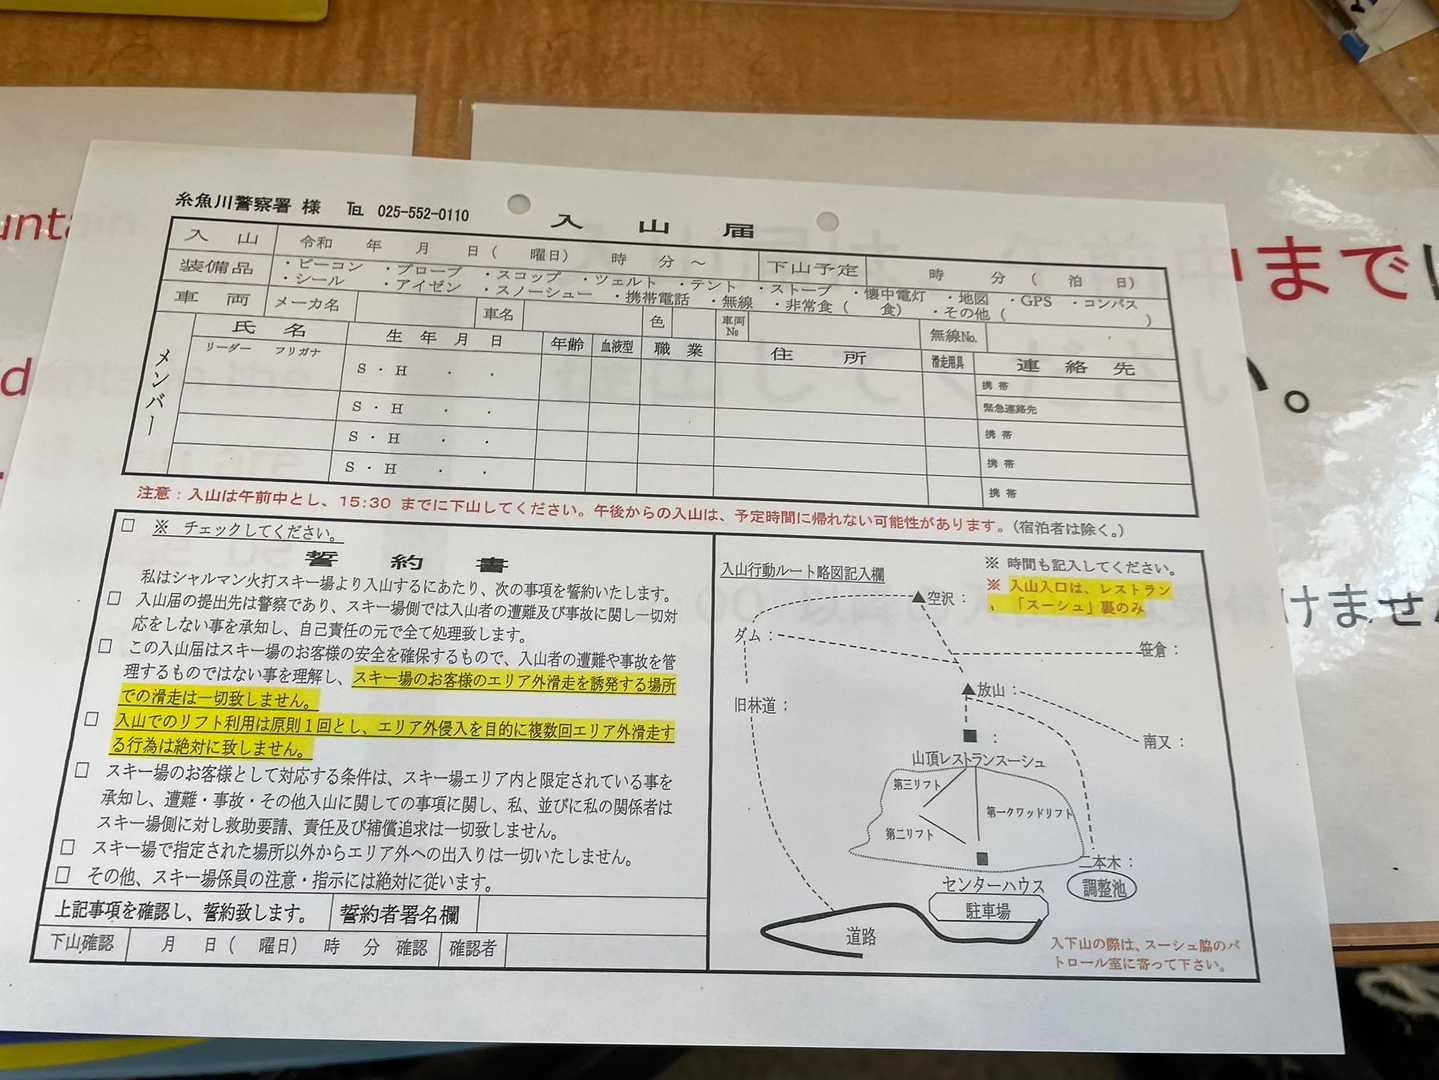 糸魚川警察署 様 ℡ 025-552-0110
入 山 届
入 山 令和 年 月 日 ( 曜日) 時 分 ～ 下山予定 時 分 ( 泊 日)
装備品 ・ビーコン ・プローブ ・スコップ ・ツェルト ・テント ・ストーブ ・懐中電灯 ・地図 ・GPS ・コンパス
・シール ・アイゼン ・スノーシュー ・携帯電話 ・無線 ・非常食 ( 食) ・その他 ( )
車 両 メーカ名 車名 色 車両№ 無線№
メンバー
氏 名 生 年 月 日 年齢 血液型 職 業 住 所 滑走用具 連 絡 先
リーダー フリガナ
S ・ H ・ ・ 携 帯
緊急連絡先
S ・ H ・ ・ 携 帯
S ・ H ・ ・ 携 帯
S ・ H ・ ・ 携 帯
注意：入山は午前中とし、15:30 までに下山してください。午後からの入山は、予定時間に帰れない可能性があります。(宿泊者は除く。)
□ ※ チェックしてください。
誓 約 書
私はシャルマン火打スキー場より入山するにあたり、次の事項を誓約いたします。
□ 入山届の提出先は警察であり、スキー場側では入山者の遭難及び事故に関し一切対
応をしない事を承知し、自己責任の元で全て処理致します。
□ この入山届はスキー場のお客様の安全を確保するもので、入山者の遭難や事故を管
理するものではない事を理解し、スキー場のお客様のエリア外滑走を誘発する場所
での滑走は一切致しません。
□ 入山でのリフト利用は原則１回とし、エリア外侵入を目的に複数回エリア外滑走す
る行為は絶対に致しません。
□ スキー場のお客様として対応する条件は、スキー場エリア内と限定されている事を
承知し、遭難・事故・その他入山に関しての事項に関し、私、並びに私の関係者は
スキー場側に対し救助要請、責任及び補償追求は一切致しません。
□ スキー場で指定された場所以外からエリア外への出入りは一切いたしません。
□ その他、スキー場係員の注意・指示には絶対に従います。
上記事項を確認し、誓約致します。 誓約者署名欄
下山確認 月 日 ( 曜日) 時 分 確認 確認者
入山行動ルート略図記入欄
※ 時間も記入してください。
※ 入山入口は、レストラン
、「スーシュ」裏のみ
▲空沢：
ダム：
笹倉：
▲放山：
旧林道：
南又：
■ ：
山頂レストランスーシュ
第三リフト
第一クワッドリフト
第二リフト
二本木：
調整池
センターハウス
駐車場
道路
入下山の際は、スーシュ脇のパ
トロール室に寄って下さい。
まで